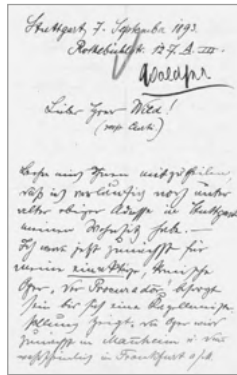 Stuttgart, 7. September 1893.
Rothebühlstr.
Lieber Herr Wild!
Beehre mich Ihnen mitzutheilen,
daß ich vorläufig noch unter
alter obiger Adresse in Stuttgart
meinen Wohnsitz habe. —
Ich war jetzt zunächst für
meine einaktige, komische
Oper, der besorgt
sein bis sich eine Kapellmeister-
stellung zeigt, die Oper wird
zunächst in Mannheim u. dann
wahrscheinlich in Frankfurt a/M.